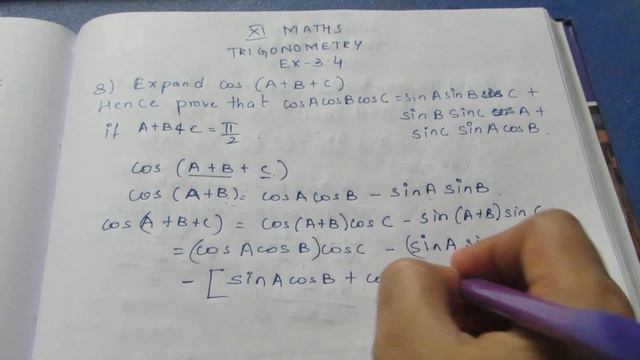 XI MATHS
TRIGONOMETRY
EX-3.4
8) Expand cos (A+B+C)
Hence prove that cosAcosBcosC = sinA sinB cos C +
sin B sinC cos A +
if A+B+C = π/2 .
sinC sinA cos B.
cos (A+B + C)
cos (A+B) = cosA cosB - sinA sinB.
cos(A+B+C) = cos(A+B)cos C - sin(A+B)sin C
= (cosA cosB)cosC - (sinA
- [ sinA cosB + co